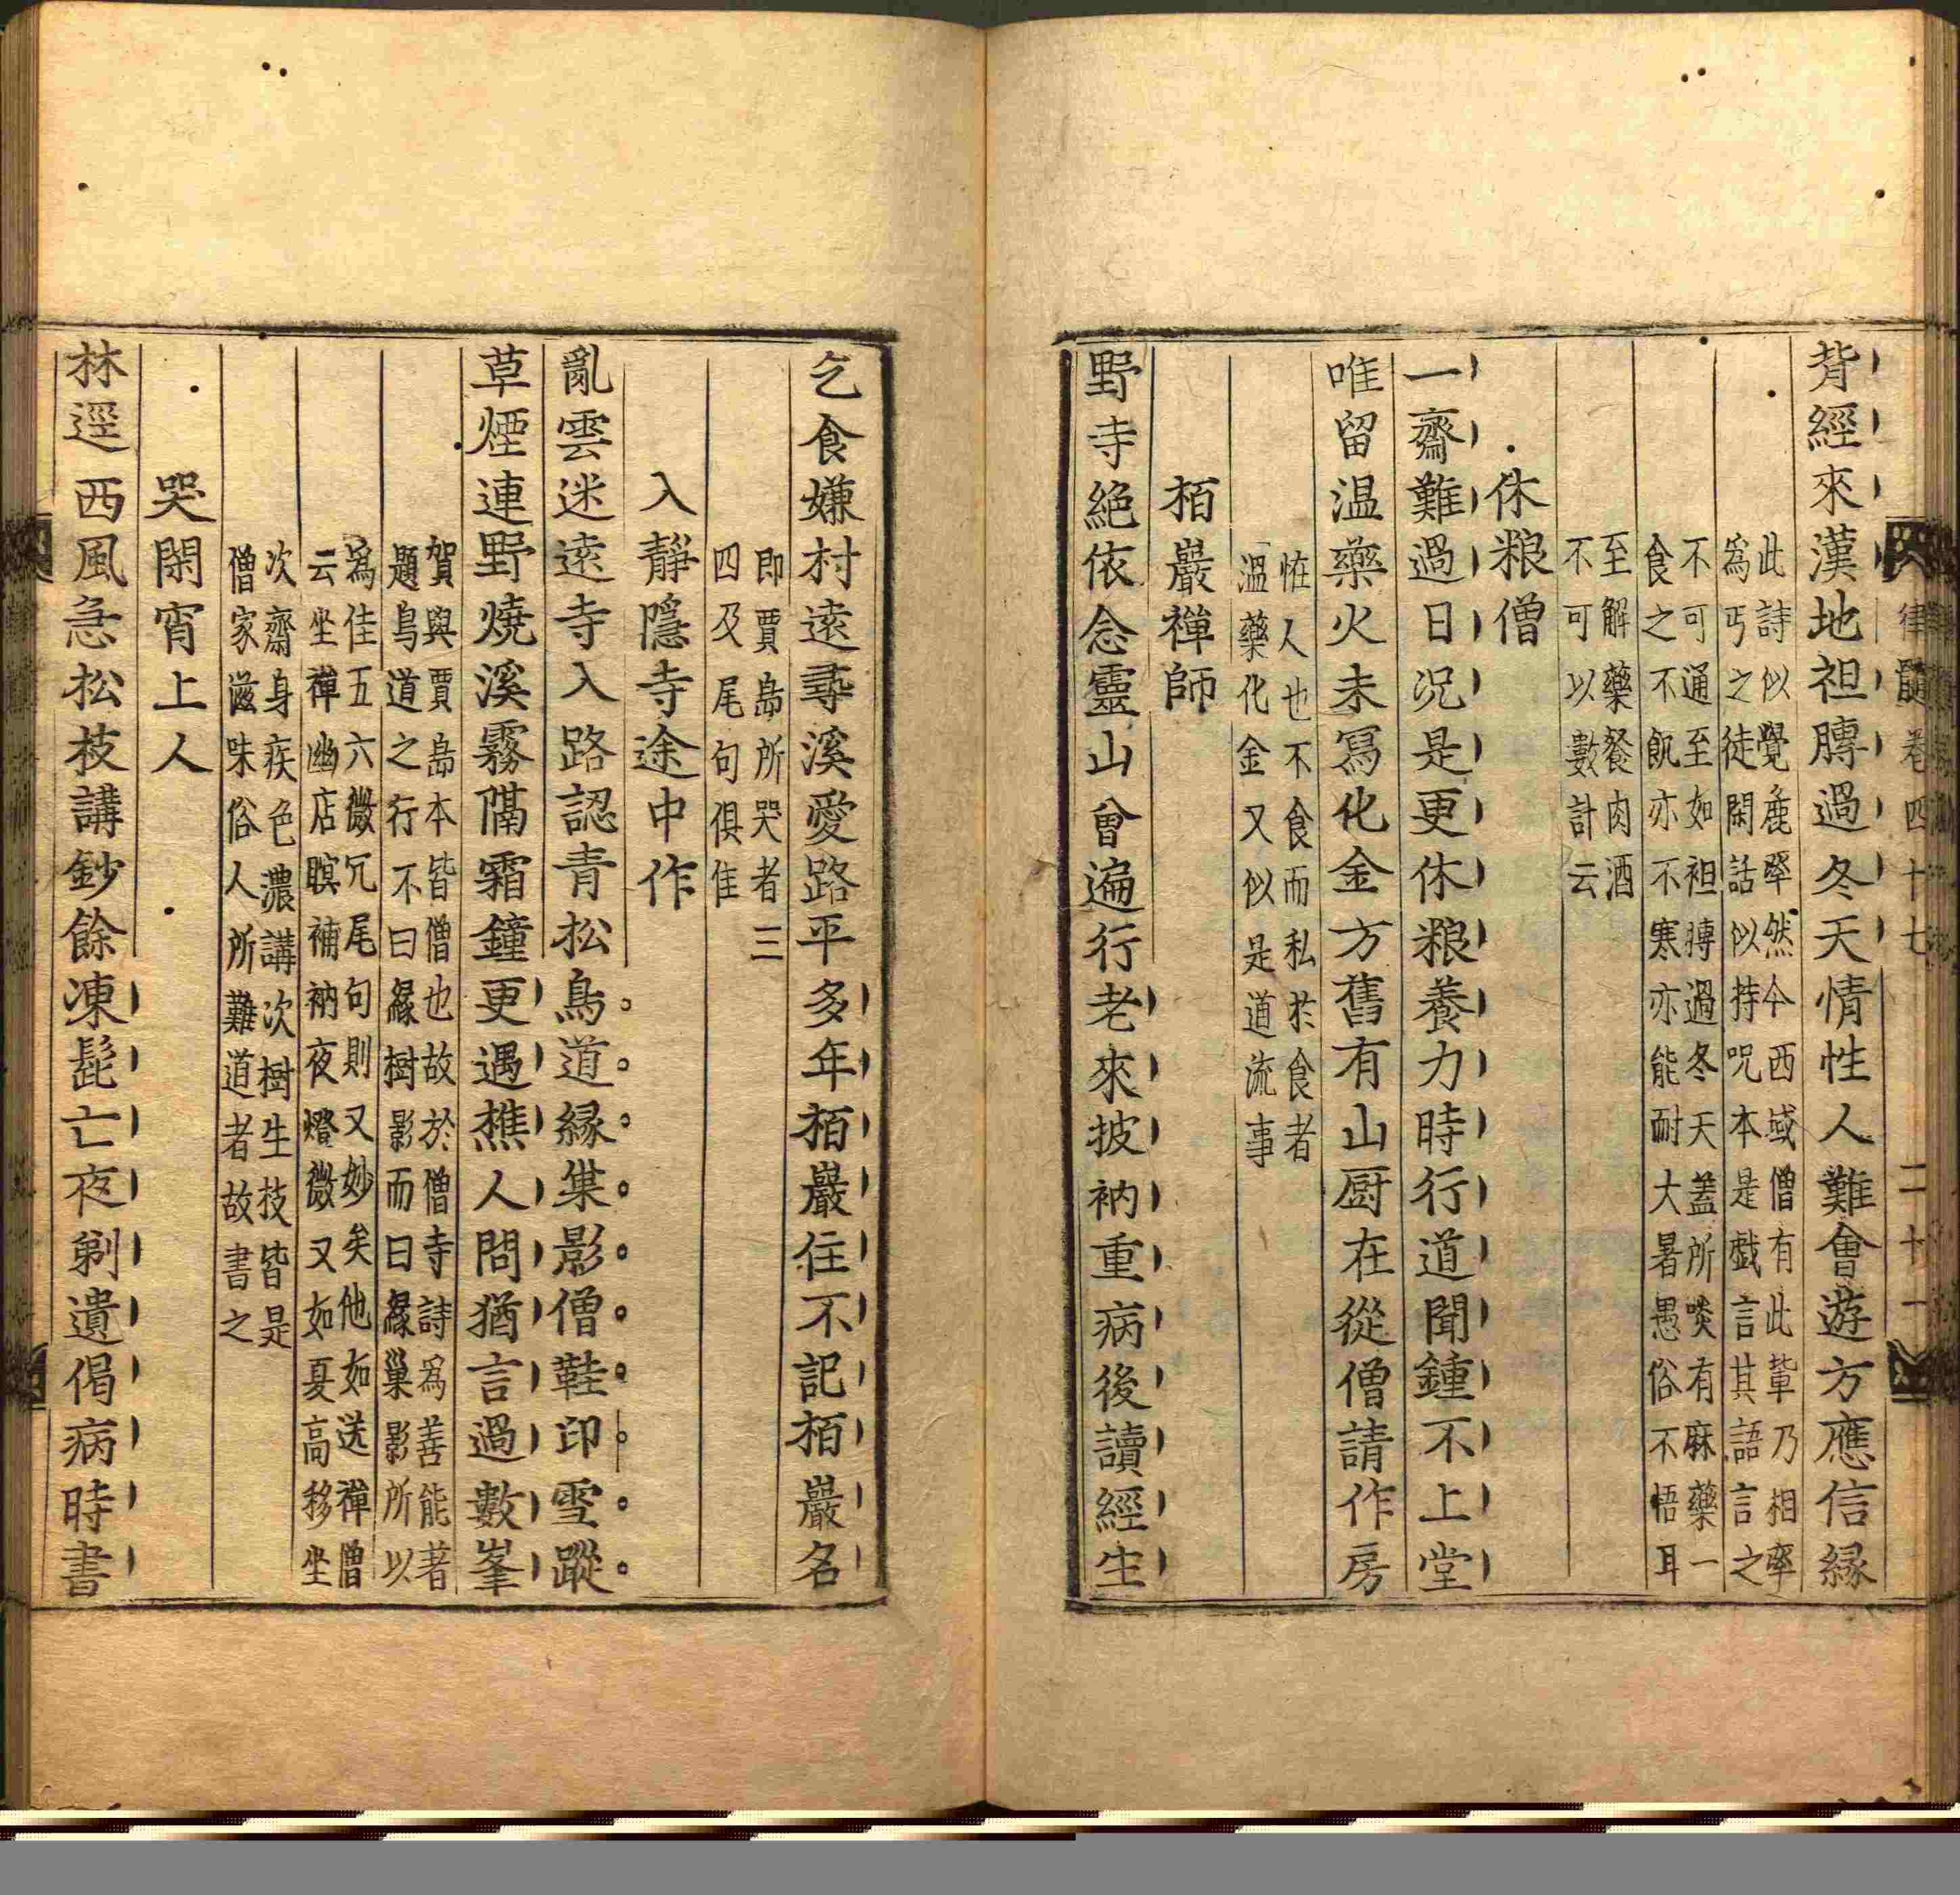 律髓卷四十七
二十一
背經來漢地袒膊過冬天情性人難會遊方應信緣
此詩似覺麁率然今西域僧有此軰乃相率
爲丐之徒閑話似持咒本是戲言其語言之
不可通至如袒膊過冬天蓋所啖有麻藥一
食之不飢亦不寒亦能耐大暑愚俗不悟耳
至解藥餐肉酒
不可以數計云
休粮僧
一齋難過日况是更休粮養力時行道聞鍾不上堂
唯留温藥火未寫化金方舊有山厨在從僧請作房
恠人也不食而私於食者
温藥化金又似是道流事
栢巖禪師
野寺絶依念靈山曾遍行老來披衲重病後讀經生
乞食嫌村遠尋溪愛路平多年栢巖住不記栢巖名
即賈島所哭者三
四及尾句俱佳
入靜隱寺途中作
亂雲迷遠寺入路認青松鳥道緣巢影僧鞋印雪蹤
草煙連野燒溪霧隔霜鐘更遇樵人問猶言過數峯
賀與賈島本皆僧也故於僧寺詩爲善能著
題鳥道之行不曰緣樹影而曰緣巢影所以
爲佳五六微冗尾句則又妙矣他如送禪僧
云坐禪幽店暝補衲夜燈微又如夏高移坐
次齋身疾色濃講次樹生技皆是
僧家滋味俗人所難道者故書之
哭閑宵上人
林逕西風急松枝講鈔餘凍髭亡夜剃遺偈病時書